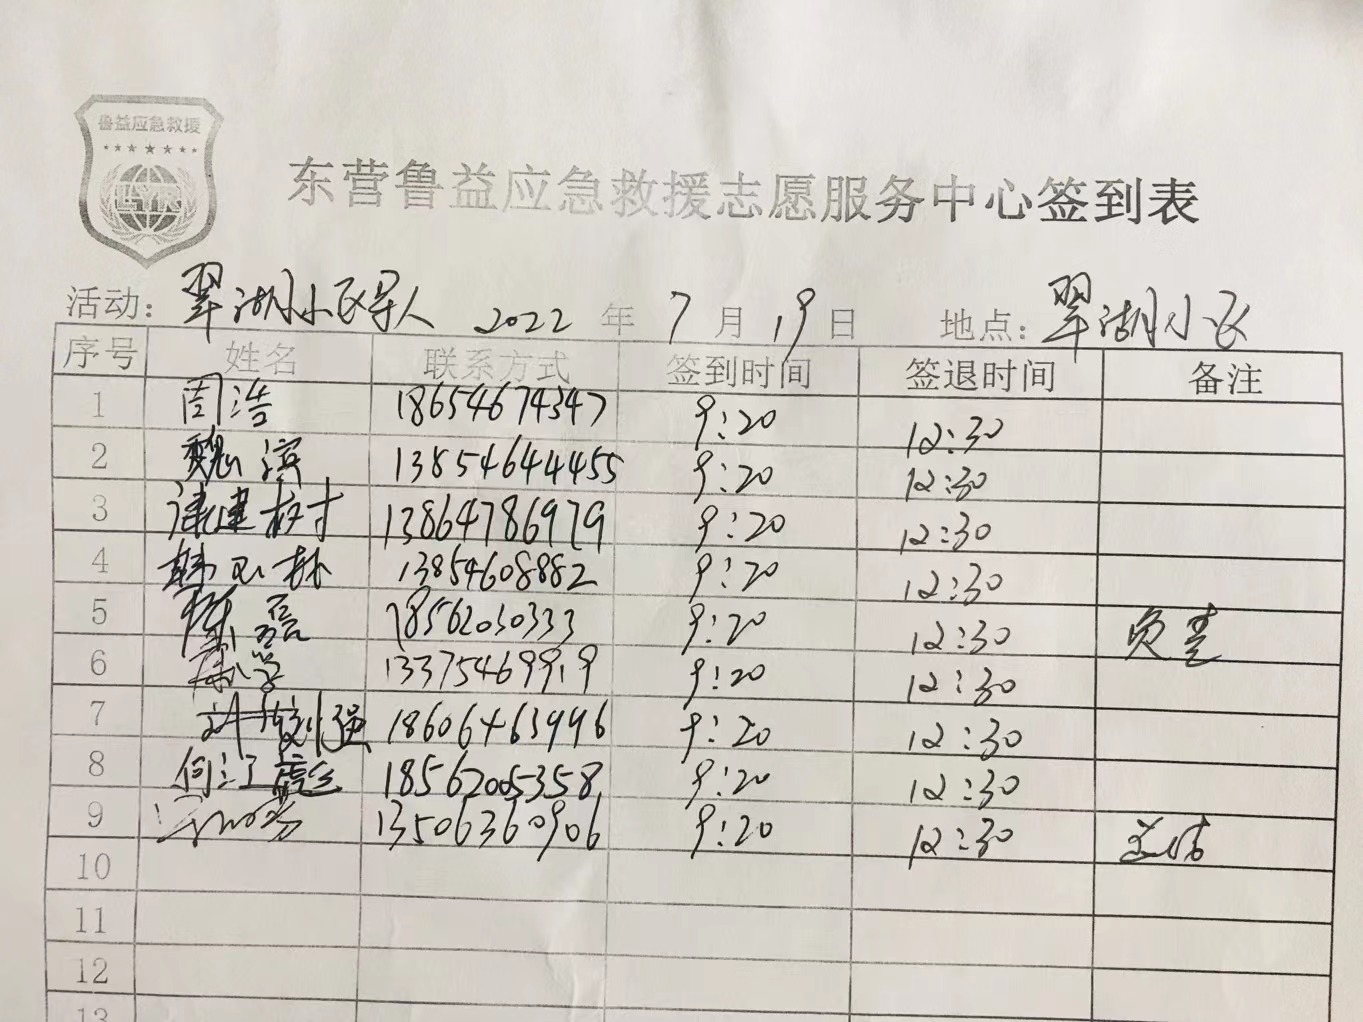 鲁益应急救援
LYR
东营鲁益应急救援志愿服务中心签到表
活动: 翠湖小区寻人 2022 年 7 月 19 日 地点: 翠湖小区
序号 姓名 联系方式 签到时间 签退时间 备注
1 周浩 18654674347 9:20 12:30
2 魏滨 13854644455 9:20 12:30
3 建村 13864786979 9:20 12:30
4 韩 林 13854608882 9:20 12:30
5 陈磊 18562030333 9:20 12:30 负责
6 13375469919 9:20 12:30
7 强 18606463996 9:20 12:30
8 何江 18562005358 9:20 12:30
9 13506360906 9:20 12:30 总结
10
11
12
13